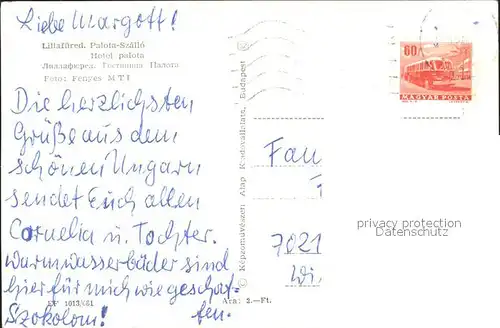 Liebe Margott!
Lillafüred. Palota-Szálló
Hotel palota
Лиллафюред. Гостиница Палота
Foto: Fenyes MTI
Die herzlichsten
Grüße aus dem
schönen Ungarn
sendet Euch allen
Cornelia u. Tochter.
Warmwasserbäder sind
hier für mich wie geschaf-
fen.
Szokolom!
1013/681
Ára: 2.-Ft.
© Képzőművészeti Alap Kiadóvállalata, Budapest
60
MAGYAR POSTA
Fam
7021
privacy protection
Datenschutz